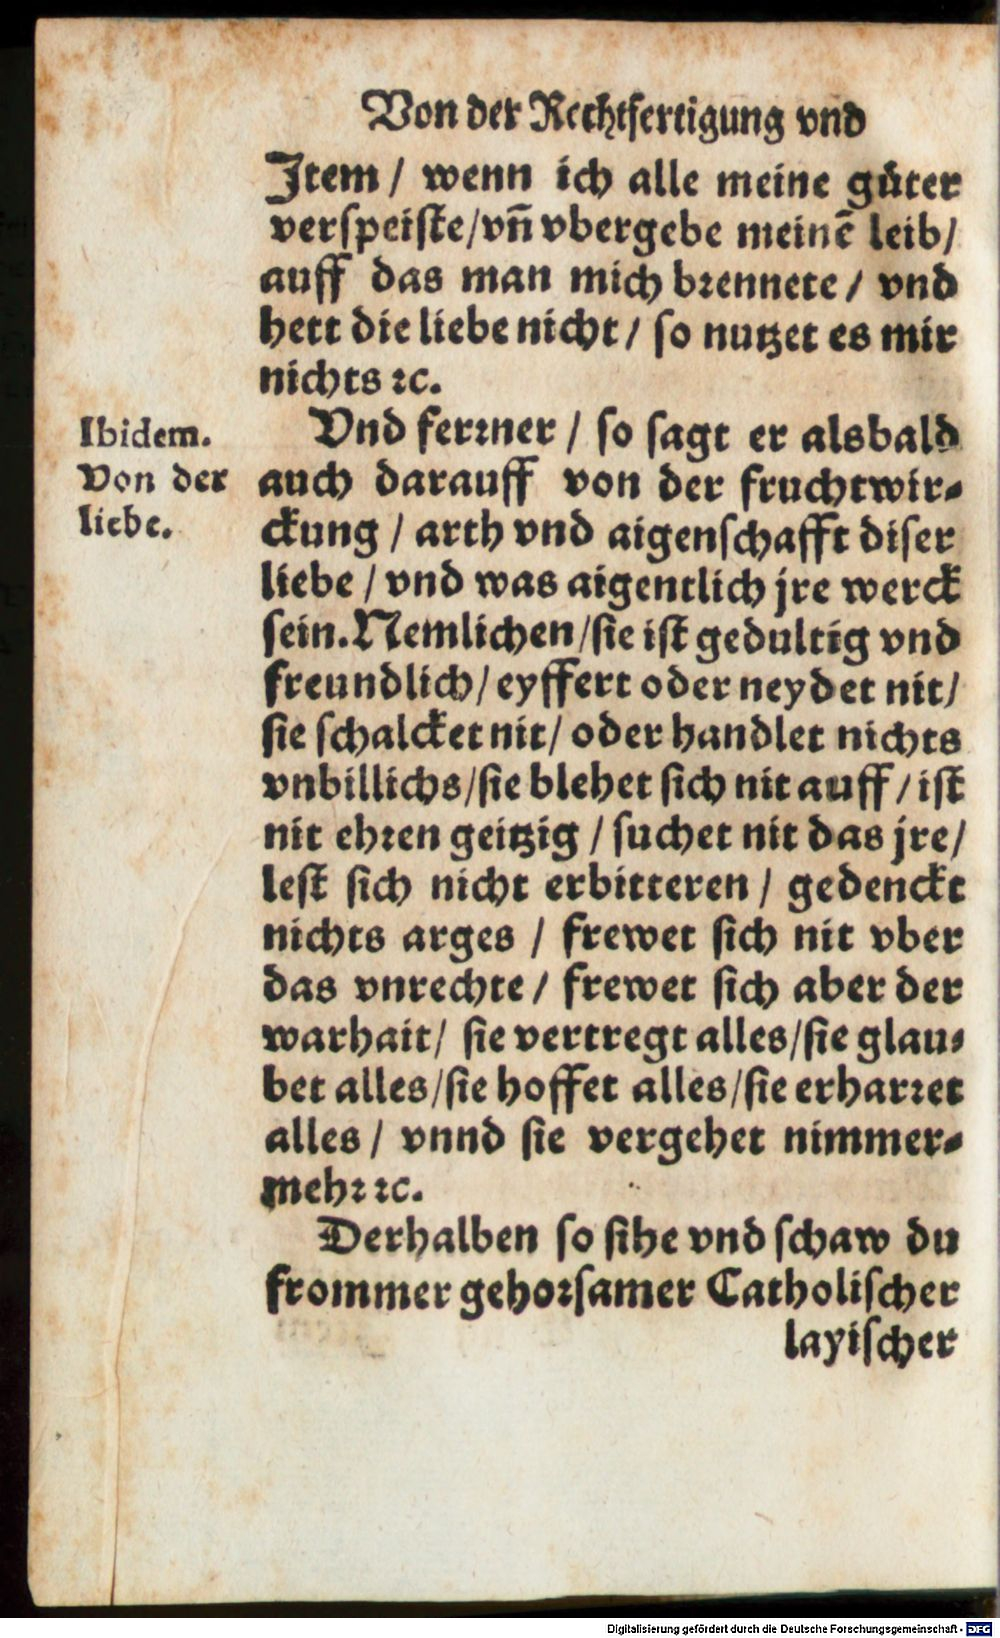 Von der Rechtfertigung vnd
Item / wenn ich alle meine güter
verspeiste/vñ vbergebe meinẽ leib/
auff das man mich brennete / vnd
hett die liebe nicht / so nutzet es mir
nichts ꝛc.
Ibidem.
Von der
liebe.
Vnd ferrner / so sagt er alsbald
auch darauff von der fruchtwir-
ckung / arth vnd aigenschafft diser
liebe / vnd was aigentlich jre werck
sein. Nemlichen/sie ist gedultig vnd
freundlich/ eyffert oder neydet nit/
sie schalcket nit/ oder handlet nichts
vnbillichs/sie blehet sich nit auff / ist
nit ehren geitzig / suchet nit das jre/
lest sich nicht erbitteren / gedenckt
nichts arges / frewet sich nit vber
das vnrechte / frewet sich aber der
warhait/ sie vertregt alles/sie glau-
bet alles/sie hoffet alles/sie erharret
alles / vnnd sie vergehet nimmer-
mehr ꝛc.
Derhalben so sihe vnd schaw du
frommer gehorsamer Catholischer
layischer
Digitalisierung gefördert durch die Deutsche Forschungsgemeinschaft - DFG